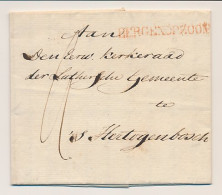 Aan
BERGENOPZOOM
Den Eerw. Kerkeraad
der Luthersche Gemeente
te
's Hertogenbosch